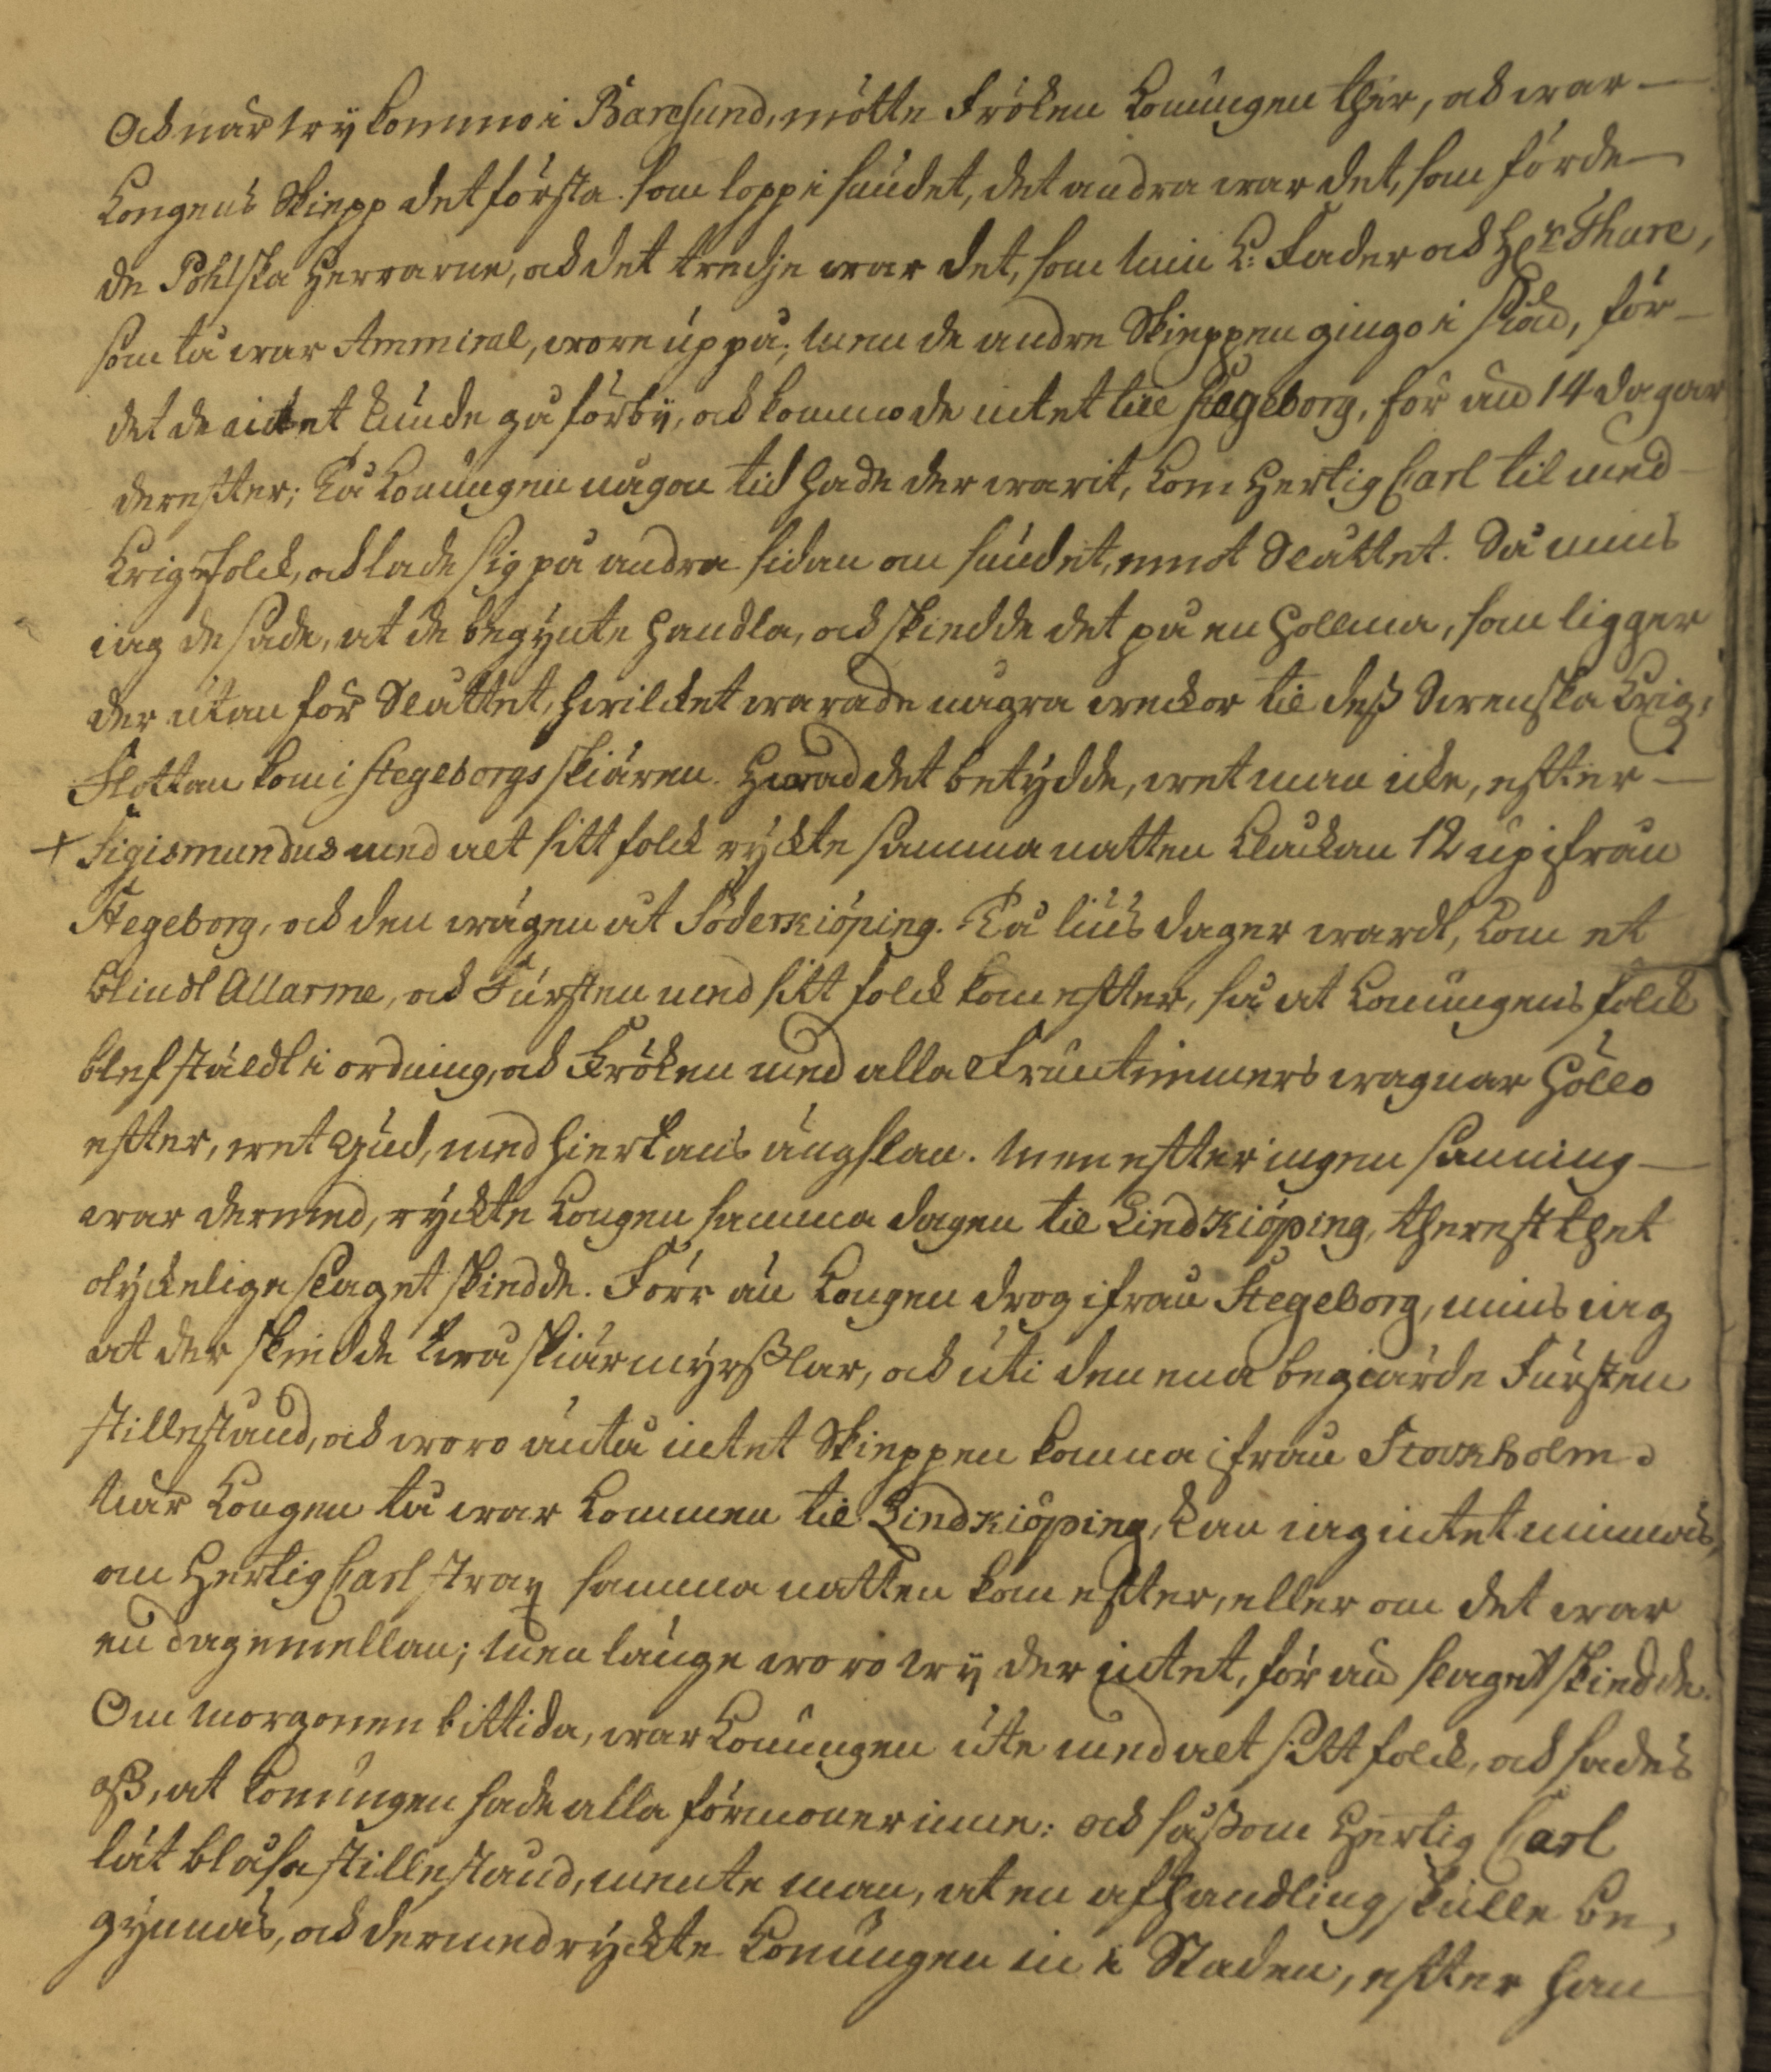 Och när wÿ kommo i Baresund, mötte Fröken Konungen ther, och war
Kongens Skiepp det första som lopp i sundet, det andra war det, som förde
de Pohlska Herrarne, och det tredje war det, som min K: Fader och Hr Thure,
som tå war Ammiral, wore uppå; men de andre Skieppen gingo i siön, för
det de intet kunde gå förbÿ, och kommo de intet till Stegeborg, för än 14 dagar
derefter; Tå Konungen någon tid hade der warit, kom Hertig Carl til med
Krigsfolck, och lade sig på andra sidan om sundet, emot Slåttet. Då mins
iag de sade, at de begÿnte handla, och skiedde det på en Hollma, som ligger
der utan för Slåttet, hwilcket warade några weckor til dess Swenska Krigs
Flottan kom i Stegeborgs skiären. Hwad det betÿdde, wet man icke, efter
+ Sigismundus med alt sitt folck rÿckte samma natten Klockan 12 up ifrån
Stegeborg, och den wägen åt Söderkiöping. Tå lius dager wardt, kom et
blindt Allarme, och Fursten med sitt folck kom efter, så at Konungens folck
blef stäldt i ordning, och Fröken med alla Fruntimmers wagnar höllo
efter, wet Gud, med hiertans ängslan. Men efter ingen sanning
war dermed, rÿckte Kongen samma dagen til Lindkiöping, therest thet
olÿckelige slaget skiedde. Förr än Kongen drog ifrån Stegeborg, mins iag
at der skiedde twå skiärmÿsslar, och uti den ena begiärde Fursten
stillestånd, och woro äntå intet Skieppen komna ifrån Stockholm.
När Kongen tå war kommen til Lindkiöping, kan iag intet minnas,
om Hertig Carl strax samma natten kom efter, eller om det war
en dag emellan; men länge woro wÿ der intet, för än slaget skiedde.
Om morgonen bittida, war Konungen ute med alt sitt folck, och sades
oss, at Konungen hade alla förmoner inne: och såssom Hertig Carl
lät blåsa stillestånd, mente man, at en afhandling skulle be,
gÿnnas, och dermed rÿckte Konungen in i Staden, efter han